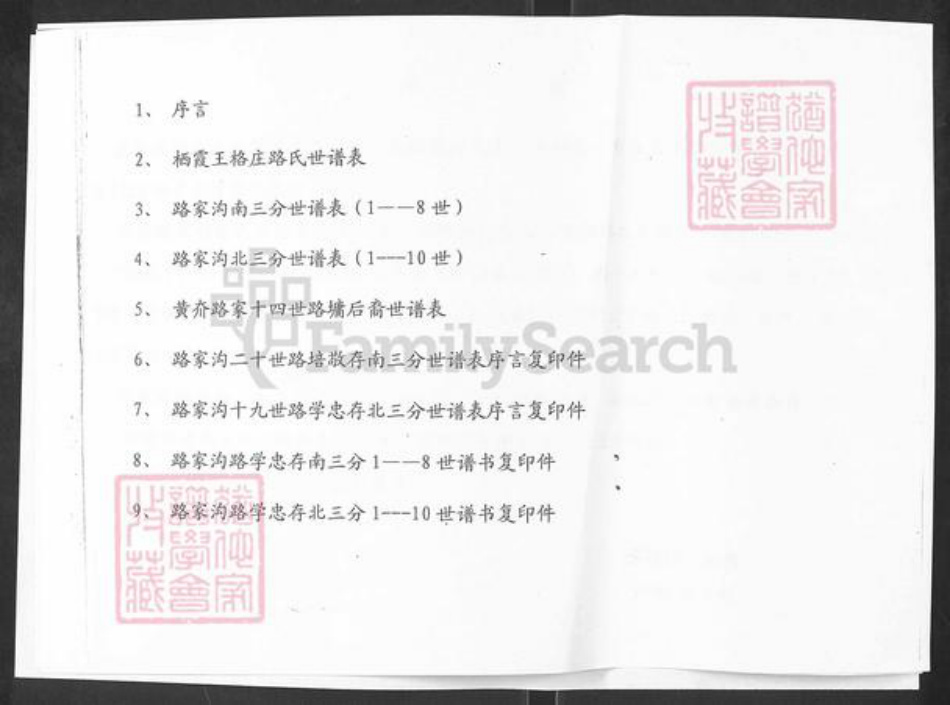 1、 序言
2、 栖霞王格庄路氏世谱表
3、 路家沟南三分世谱表（1——8 世）
4、 路家沟北三分世谱表（1---10 世）
5、 黄夼路家十四世路墉后裔世谱表
6、 路家沟二十世路培敬存南三分世谱表序言复印件
7、 路家沟十九世路学忠存北三分世谱表序言复印件
8、 路家沟路学忠存南三分 1——8 世谱书复印件
9、 路家沟路学忠存北三分 1---10 世谱书复印件
FamilySearch
猶他家
譜學會
收藏
猶他家
譜學會
收藏